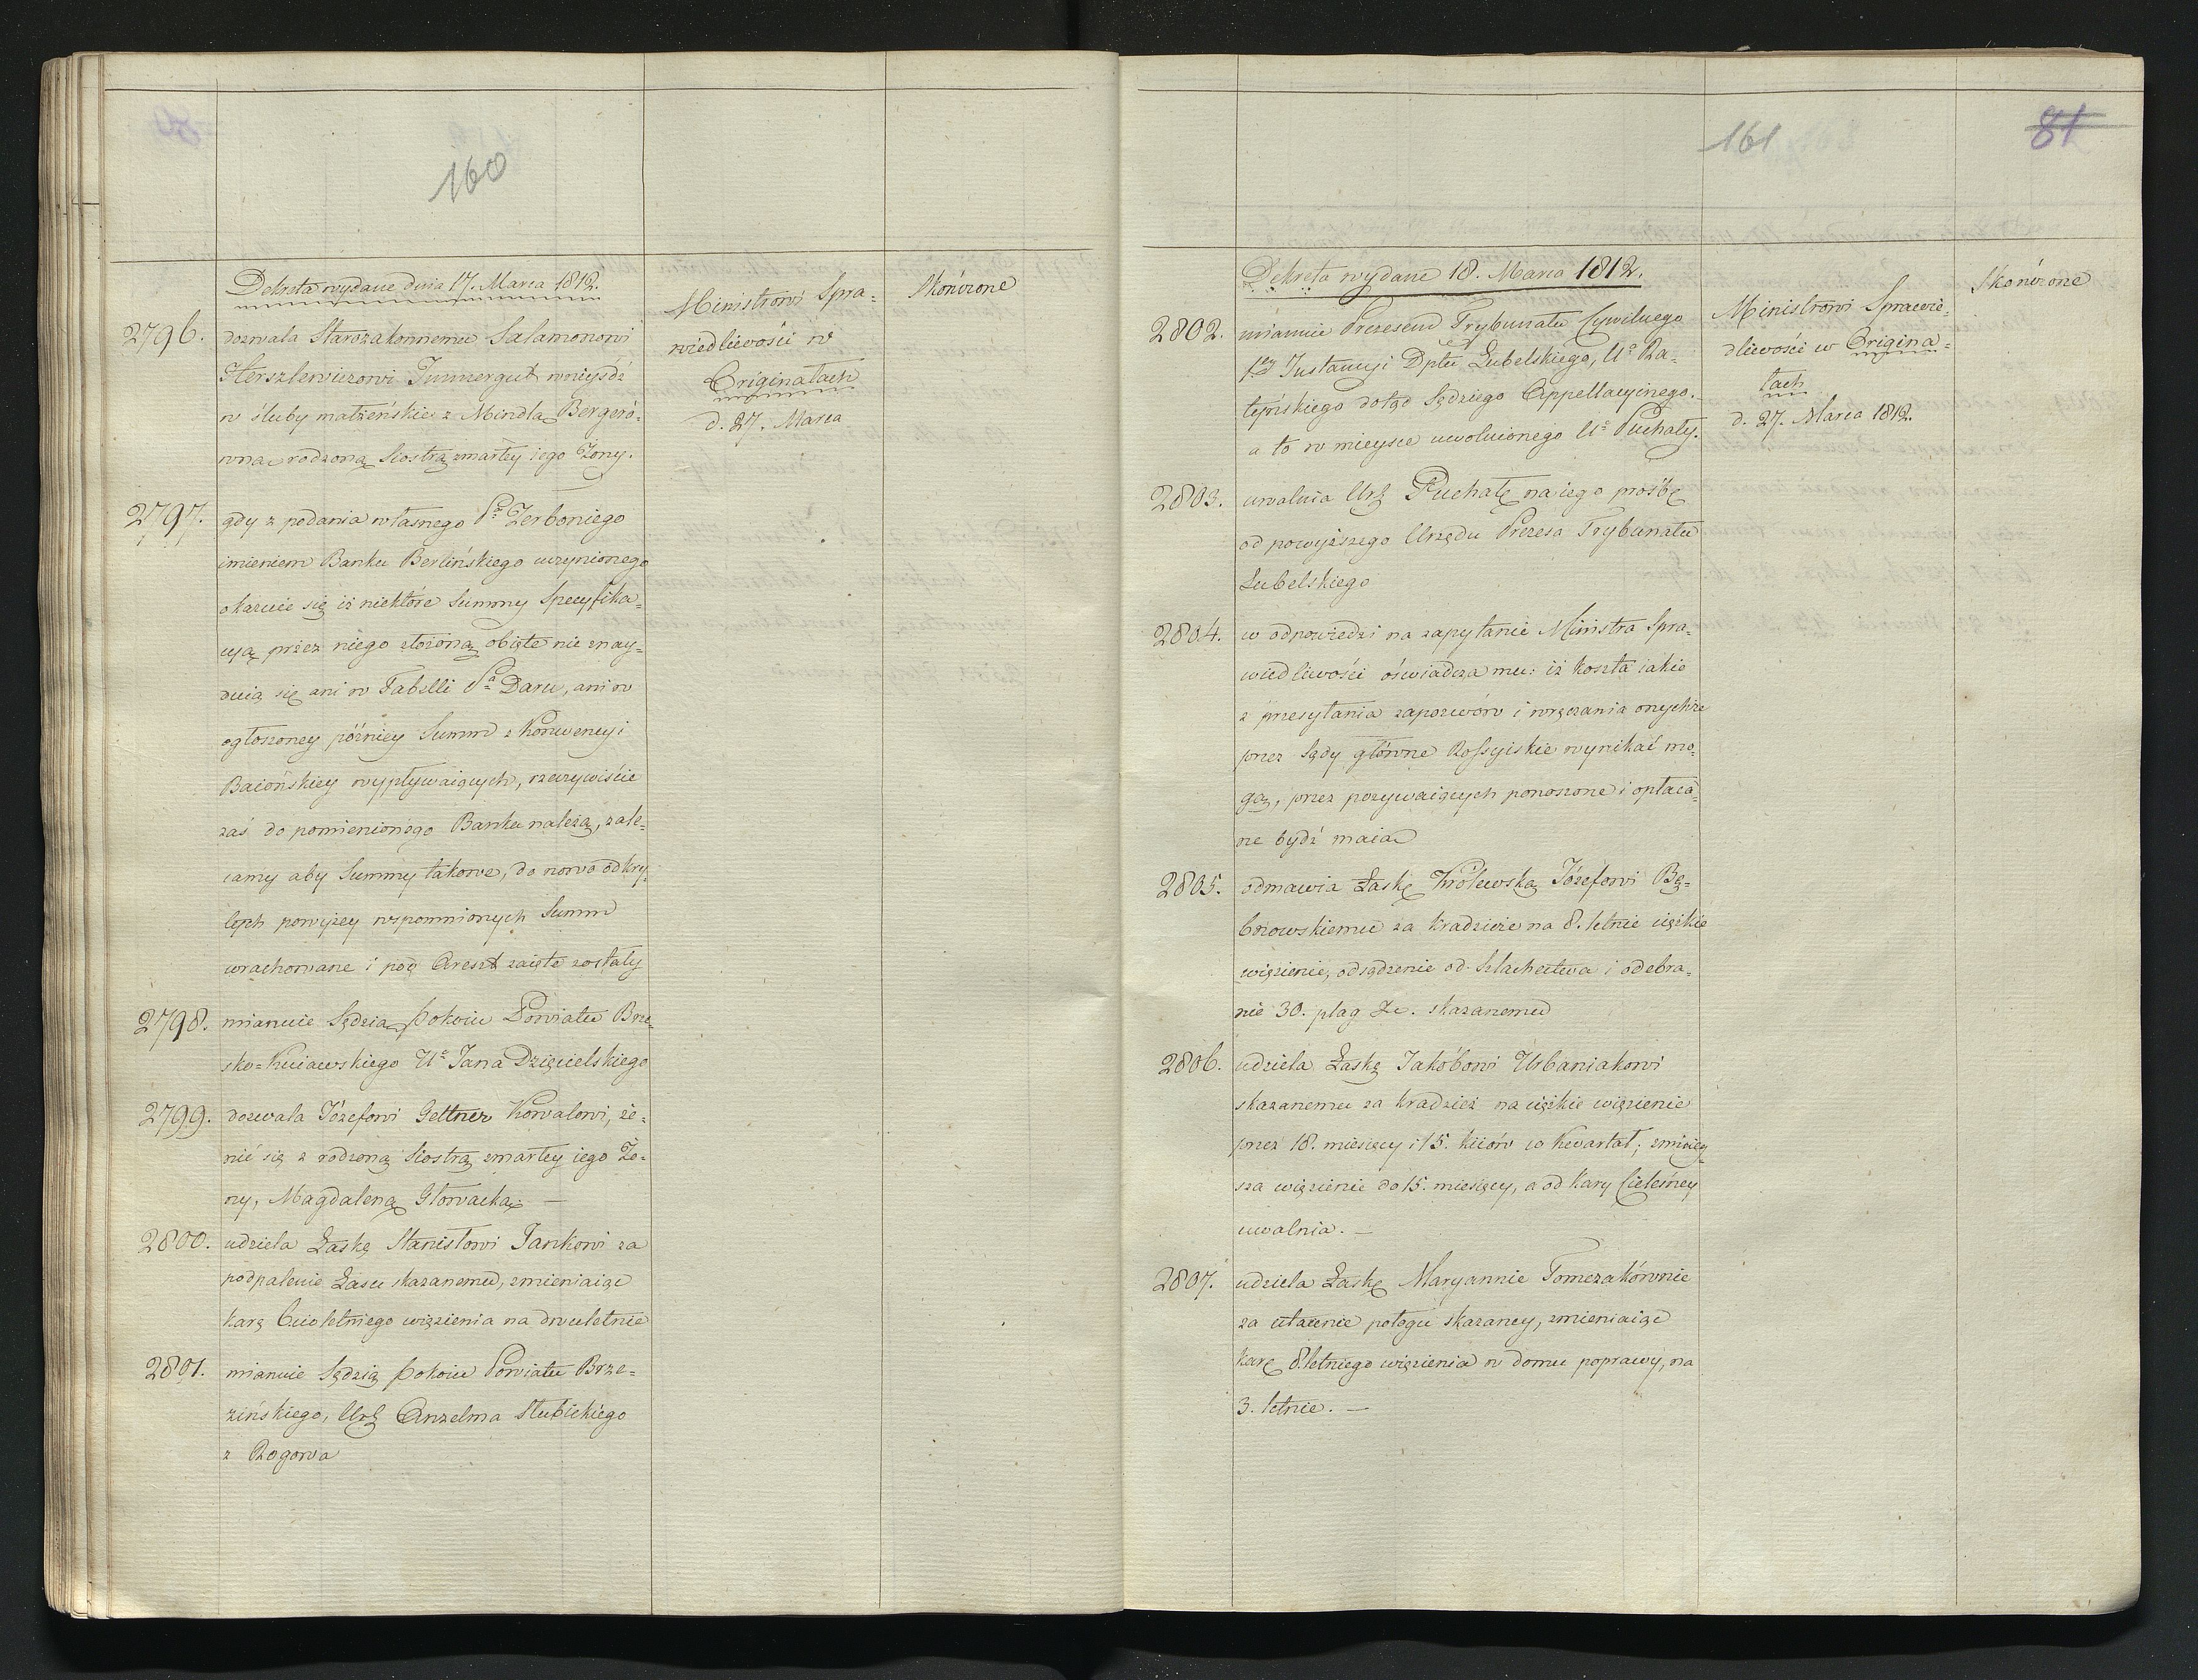 160
Dekreta wydane dnia 17. Marca 1812.
Ministrowi Spra=
wiedliwości w
Originałach
d. 27. Marca
Skończone
2796. dozwala Starozakonnemu Salamonowi
Herszlewiczowi Immergut wniyśdź
w śluby małżeńskie z Mindlą Bergeró=
wną rodzoną Siostrą zmarłey iego Żony.
2797. gdy z podania własnego Pa Zerboniego
imieniem Banku Berlińskiego uczynionego
okazuie się iż niektóre Summy Specyfika=
cyą przez niego złożoną obięte nie znay=
duią się ani w Tabelli Pa Daru, ani w
ogłoszoney późniey Summ z Konwencyi
Baiońskiey wypływaiących, rzeczywiście
zaś do pomienionego Banku należą, zale=
camy aby Summy takowe, do nowo odkry=
tych powyżey wspomnionych Summ
wrachowane i pod Areszt zaięte zostały
2798. mianuie Sędzią pokoiu Powiatu Brze=
sko=Kuiawskiego Uo Jana Dzięcielskiego
2799. dozwala Józefowi Geltner Kowalowi, że=
nić się z rodzoną Siostrą zmarłey iego Żo=
ny, Magdaleną Głowacką. —
2800. udziela Łaskę Stanisłowi Jankowi za
podpalenie Lasu skazanemu, zmieniaiąc
karę 6cioletniego więzienia na dwuletnie
2801. mianuie Sędzią pokoiu Powiatu Brze=
zińskiego, Urg Anzelma Słubickiego
z Rogowa
161
81
Dekreta wydane 18. Marca 1812.
Ministrowi Sprawie=
dliwości w Origina=
łach
d. 27. Marca 1812.
Skończone
2802. mianuie Prezesem Trybunału Cywilnego
1ey Instancyi Dptu Lubelskiego, Uo Ra=
tyńskiego dotąd Sędziego Appellacyinego.
a to w mieysce uwolnionego Uo Puchały.
2803. uwalnia Urg Puchałę na iego prośbę
od powyższego Urzędu Prezesa Trybunału
Lubelskiego
2804. w odpowiedzi na zapytanie Ministra Spra=
wiedliwości oświadcza mu: iż koszta iakie
z przesyłania zapozwów i wręczania onychże
przez Sądy główne Rossyiskie wynikać mo=
gą, przez pozywaiących ponoszone i opłaca=
ne bydź maią
2805. odmawia Łaskę Królewską Józefowi Bę=
borowskiemu za kradzieże na 8. letnie ciężkie
więzienie, odsądzenie od Szlachectwa i odebra=
nie 30. plag &c. skazanemu
2806. udziela Łaskę Jakóbowi Urbaniakowi
skazanemu za kradzież na ciężkie więzienie
przez 18. miesięcy i 15. kiiów co kwartał; zmniey=
sza więzienie do 15. miesięcy, a od kary Cielesney
uwalnia. —
2807. udziela Łaskę Maryannie Tomczakównie
za utaienie połogu skazaney, zmieniaiąc
karę 8letniego więzienia w domu poprawy, na
3. letnie. —